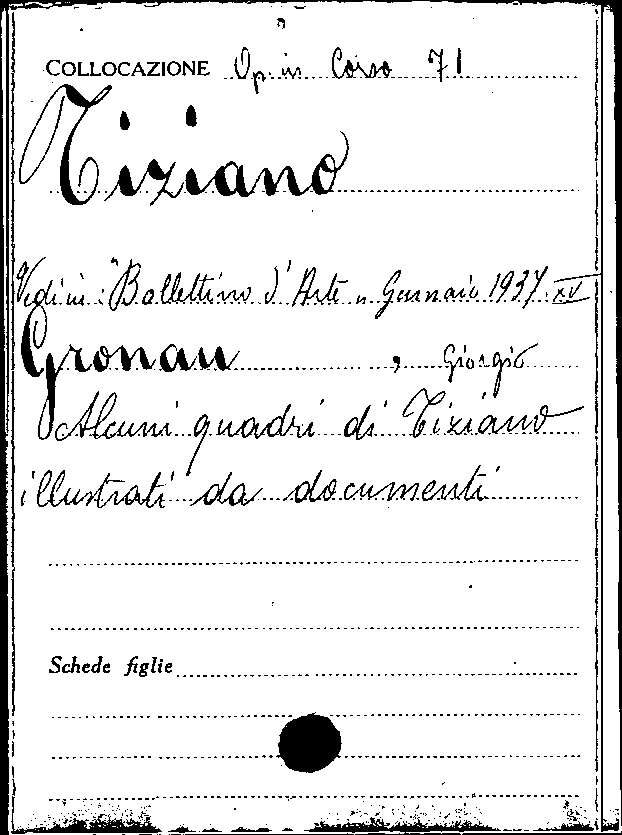 COLLOCAZIONE Op. in Corso 71
Tiziano
Vedi in: "Bollettino d'Arte" Gennaio 1937. XV
Gronau, Giorgio
Alcuni quadri di Tiziano
illustrati da documenti
Schede figlie